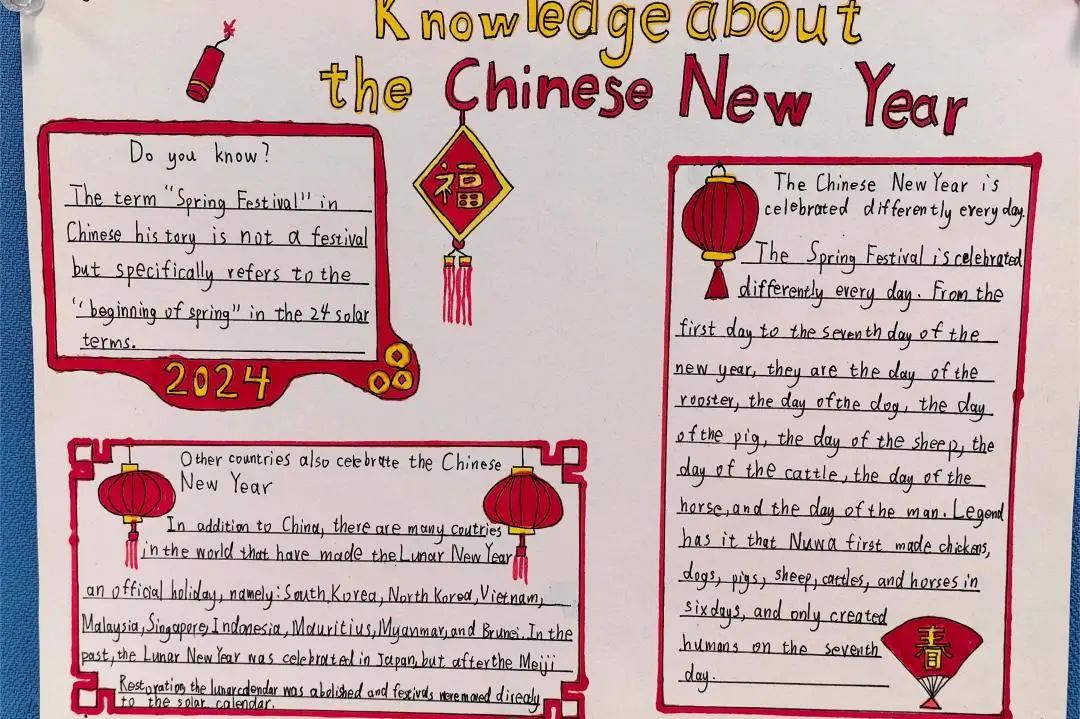 Knowledge about
the Chinese New Year
Do you know?
The term "Spring Festival" in
Chinese history is not a festival
but specifically refers to the
"beginning of spring" in the 24 solar
terms.
2024
福
The Chinese New Year is
celebrated differently every day.
The Spring Festival is celebrated
differently every day. From the
first day to the seventh day of the
new year, they are the day of the
rooster, the day of the dog, the day
of the pig, the day of the sheep, the
day of the cattle, the day of the
horse, and the day of the man. Legend
has it that Nuwa first made chickens,
dogs, pigs, sheep, cattles, and horses in
six days, and only created
humans on the seventh
day.
春
Other countries also celebrate the Chinese
New Year
In addition to China, there are many coutries
in the world that have made the Lunar New Year
an official holiday, namely: South Korea, North Korea, Vietnam,
Malaysia, Singapore, Indonesia, Mauritius, Myanmar, and Brunei. In the
past, the Lunar New Year was celebrated in Japan, but after the Meiji
Restoration, the lunar calendar was abolished and festivals were moved direcaly
to the solar calendar.